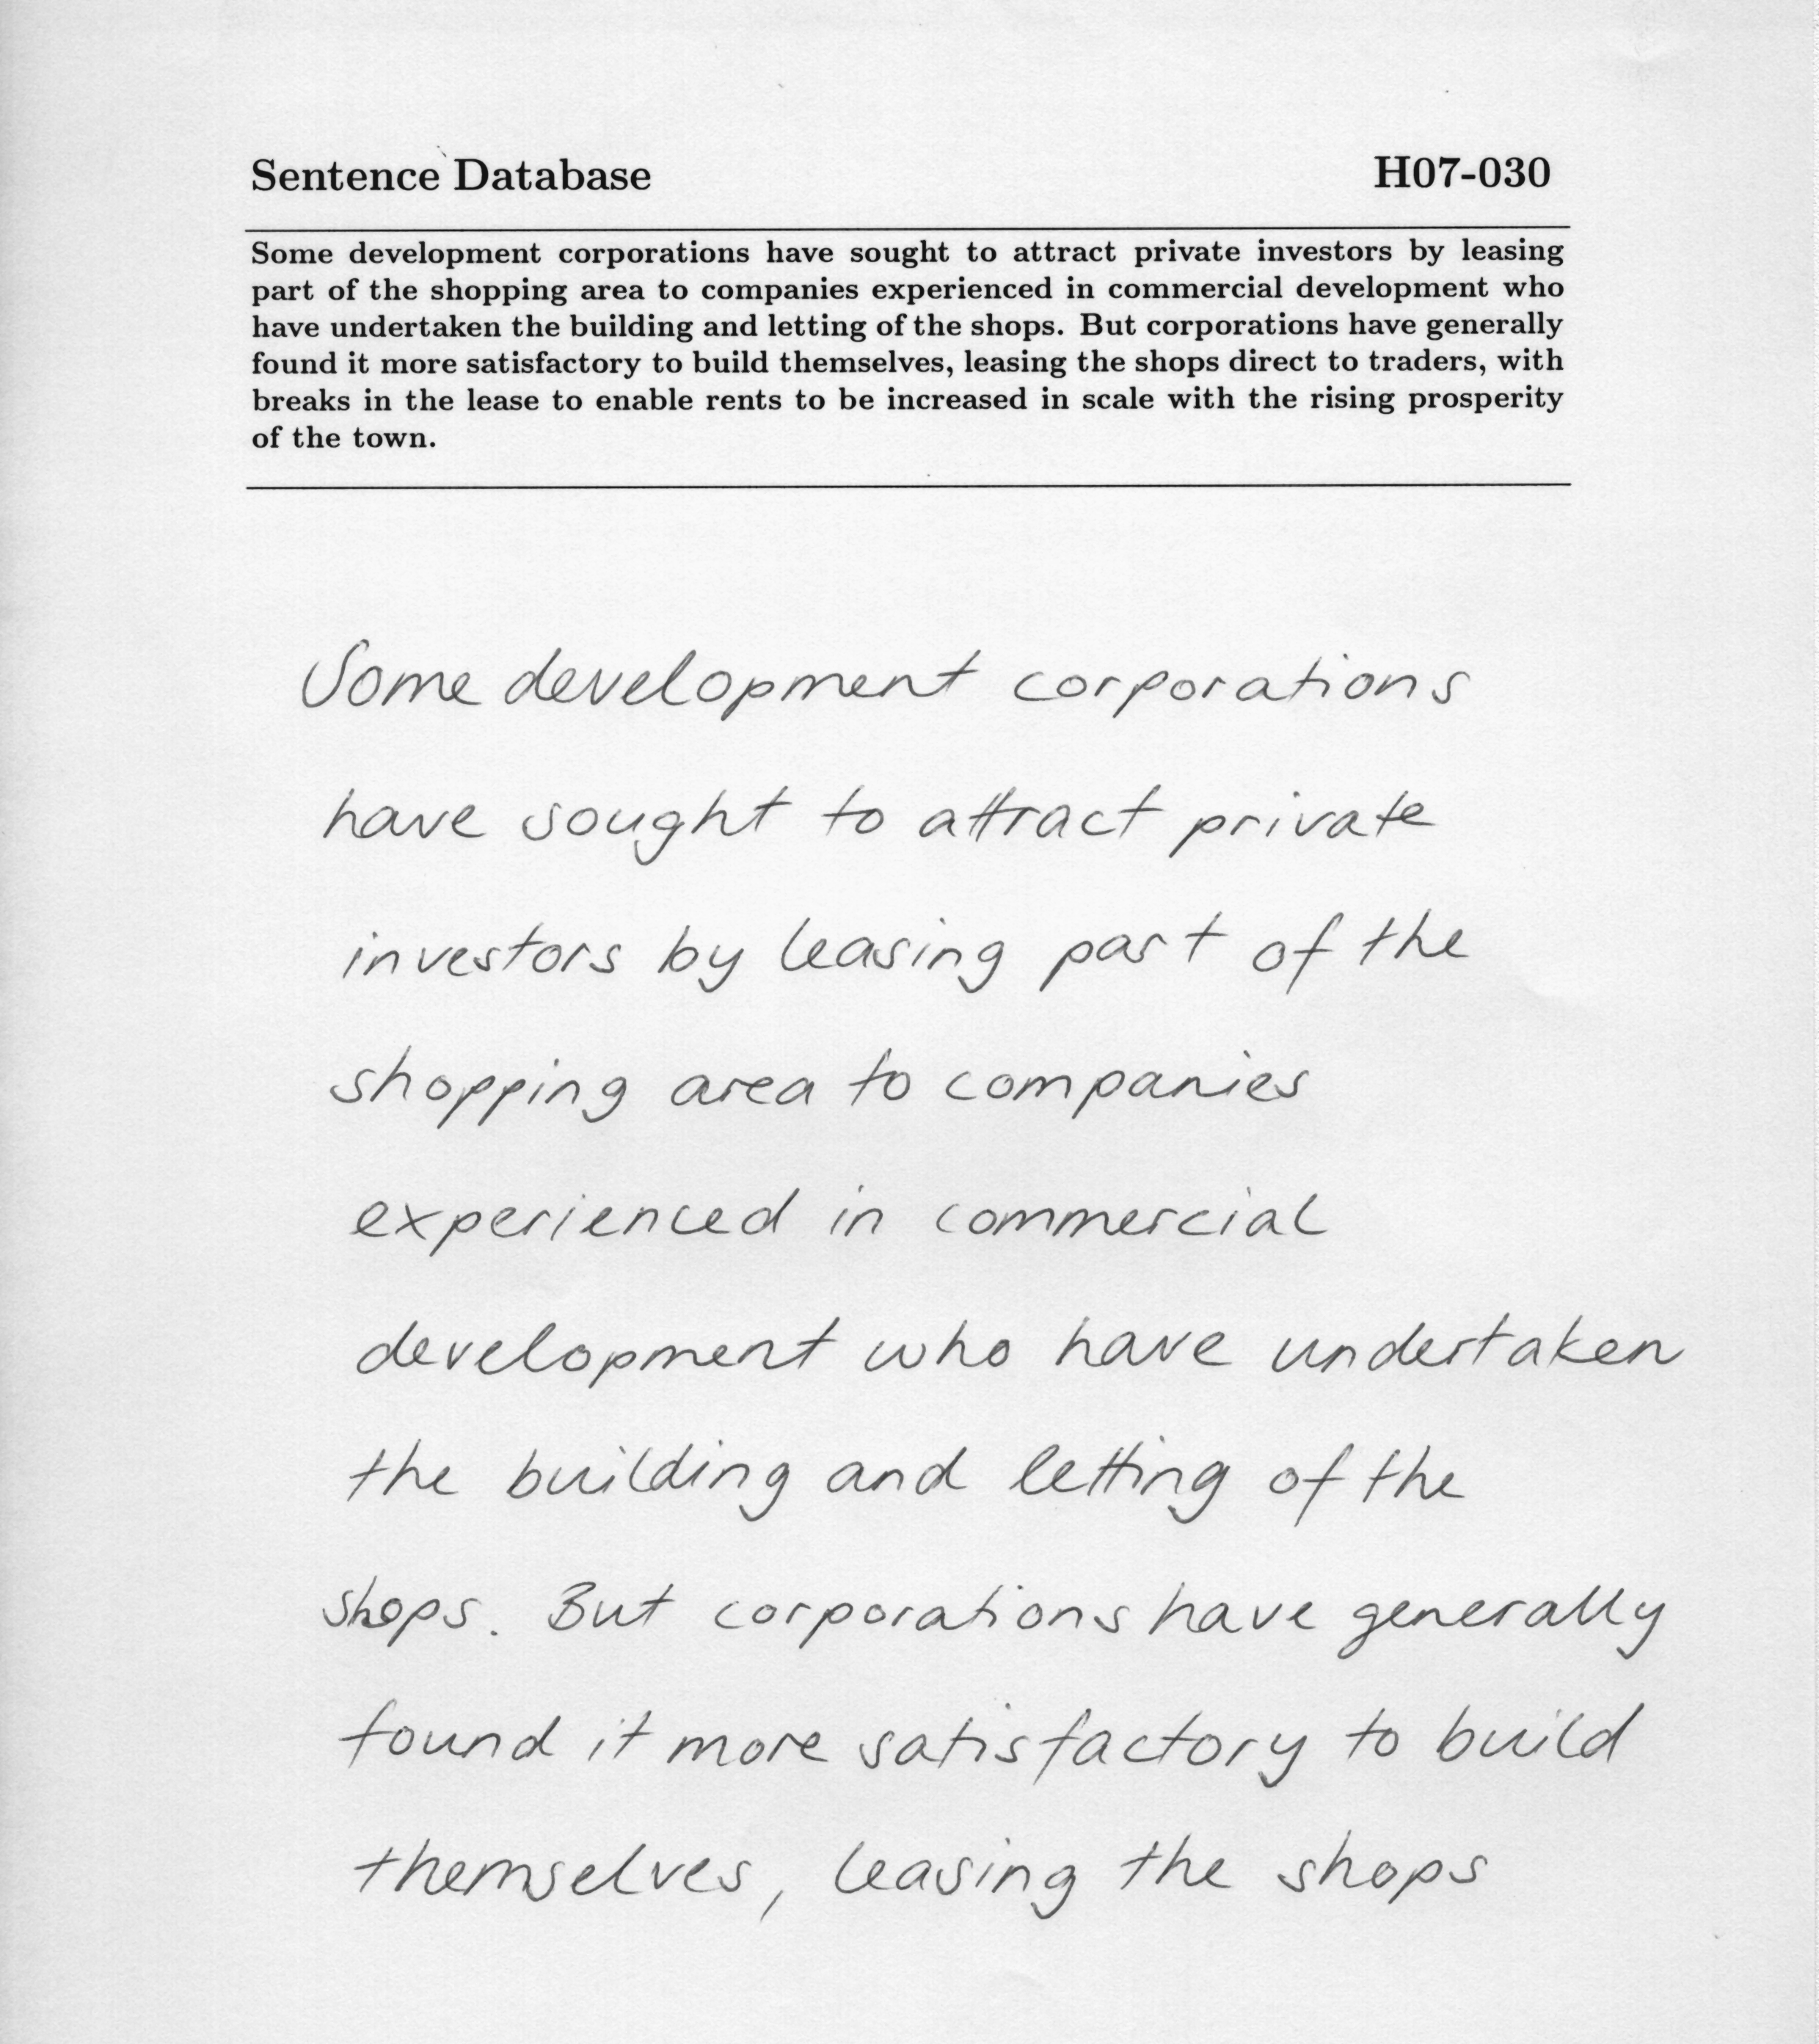 Sentence Database H07-030
Some development corporations have sought to attract private investors by leasing
part of the shopping area to companies experienced in commercial development who
have undertaken the building and letting of the shops. But corporations have generally
found it more satisfactory to build themselves, leasing the shops direct to traders, with
breaks in the lease to enable rents to be increased in scale with the rising prosperity
of the town.
Some development corporations
have sought to attract private
investors by leasing part of the
shopping area to companies
experienced in commercial
development who have undertaken
the building and letting of the
shops. But corporations have generally
found it more satisfactory to build
themselves, leasing the shops